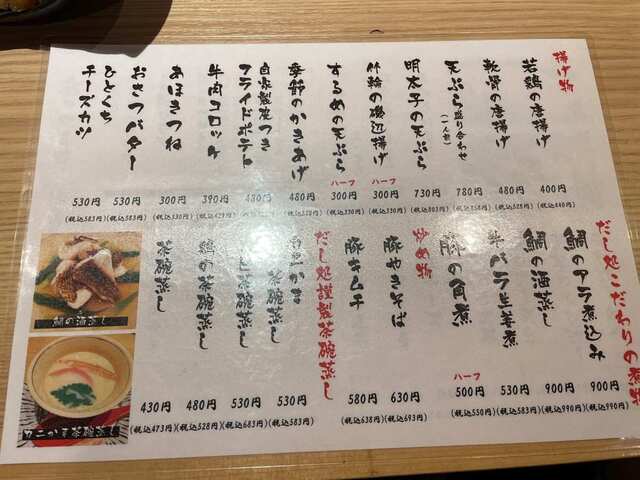 揚げ物
若鶏の唐揚げ
400円
(税込440円)
軟骨の唐揚げ
480円
(税込528円)
天ぷら盛り合わせ
(一人前)
780円
(税込858円)
明太子の天ぷら
730円
(税込803円)
竹輪の磯辺揚げ
ハーフ
300円
(税込330円)
するめの天ぷら
ハーフ
300円
(税込330円)
季節のかきあげ
480円
(税込528円)
自家製皮つき
フライドポテト
480円
牛肉コロッケ
390円
(税込429円)
あほきつね
300円
(税込330円)
おさつバター
530円
(税込583円)
ひとくち
チーズカツ
530円
(税込583円)
だし処こだわりの煮物
鯛のアラ煮込み
900円
(税込990円)
鯛の酒蒸し
900円
(税込990円)
牛バラ生姜煮
530円
(税込583円)
豚の角煮
ハーフ
500円
(税込550円)
炒め物
豚やきそば
630円
(税込693円)
豚キムチ
580円
(税込638円)
だし処謹製茶碗蒸し
かま
茶碗蒸し
530円
(税込583円)
茶碗蒸し
530円
(税込683円)
鶏の茶碗蒸し
480円
(税込528円)
茶碗蒸し
430円
(税込473円)
鯛の酒蒸し
ワニかま茶碗蒸し